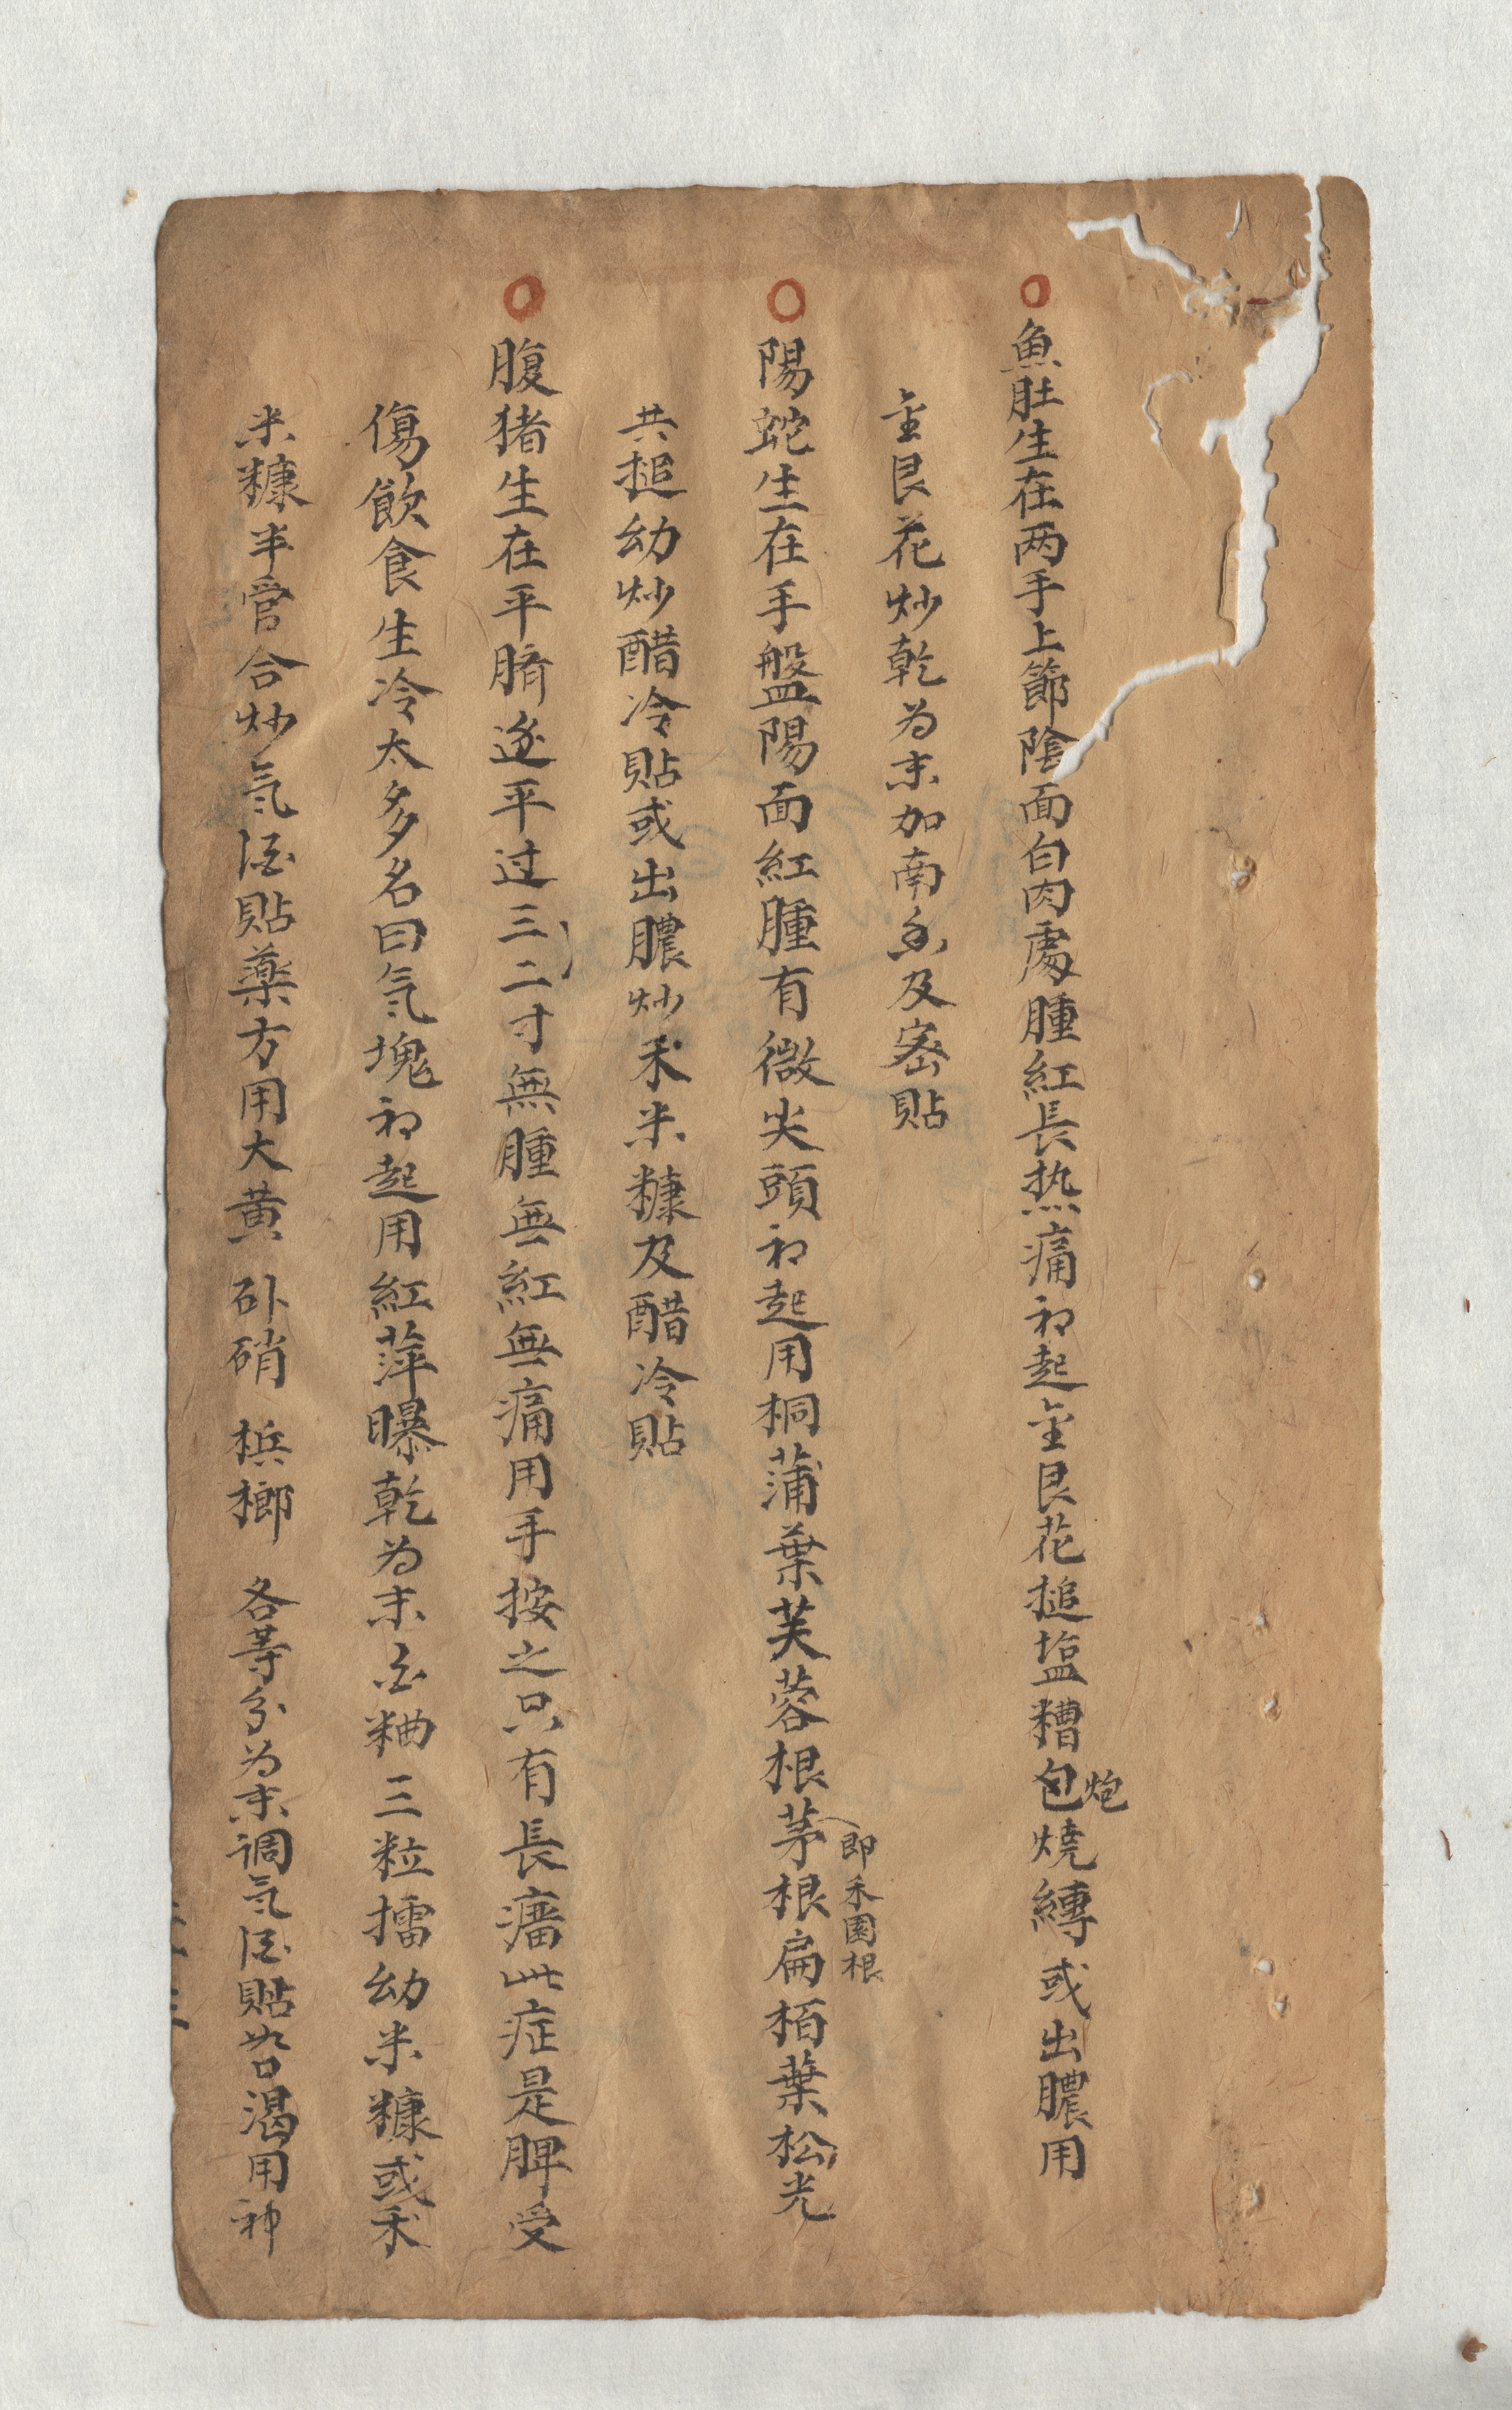 ○魚肚生在两手上節陰面白肉處腫紅長热痛初起金艮花搥塩糟包炮燒縛或出膿用
金艮花炒乾为末加南香及密貼
○陽蛇生在手盤陽面紅腫有微尖頭初起用桐蒲葉芙蓉根茅根即禾園根扁栢葉松光
共搥幼炒醋冷貼或出膿炒禾米糠及醋冷貼
○腹猪生在平臍邊平过三二寸無腫無紅無痛用手按之只有長癗此症是脾受
傷飲食生冷太多名曰気塊初起用紅萍曝乾为末白粬三粒擂幼米糠或禾
米糠半管合炒気酒貼藥方用大黄 砂硝 梹榔 各等分为末調気酒貼若渴用神